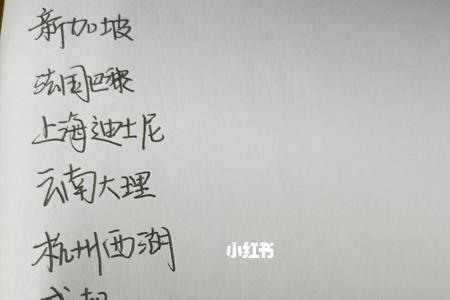 新加坡
法国巴黎
上海迪士尼
云南大理
杭州西湖
小红书